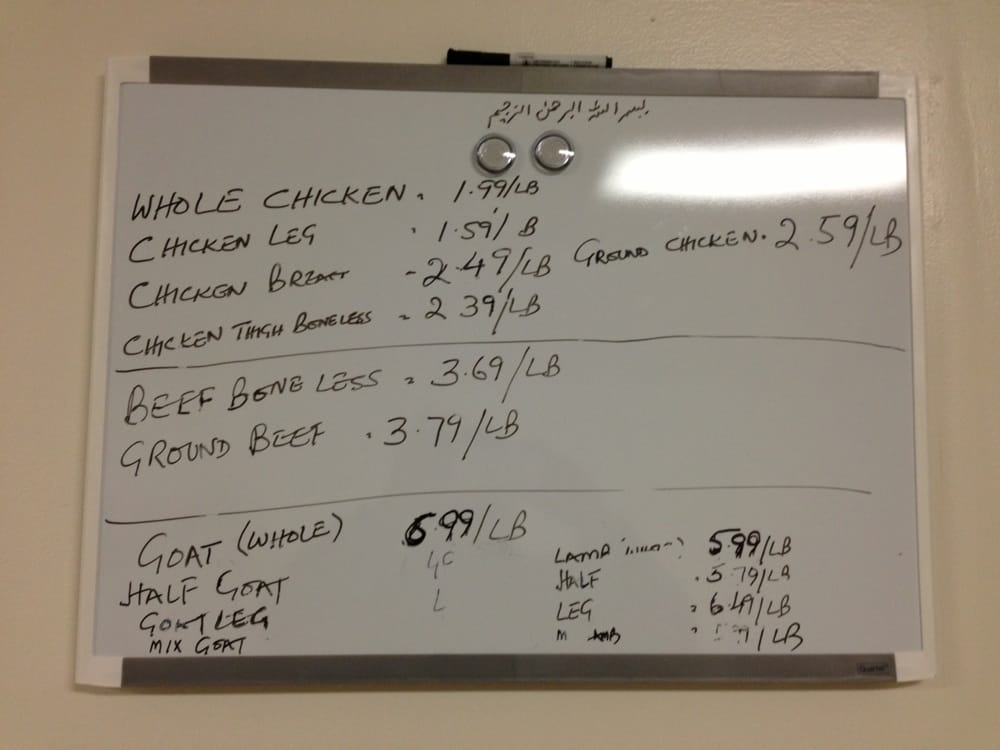 بسم الله الرحمن الرحيم
WHOLE CHICKEN . 1.99/LB
CHICKEN LEG . 1.59/ B
CHICKEN BREAST - 2.49/LB
GROUND CHICKEN . 2.59/LB
CHICKEN THIGH BONELESS = 2 39/LB
BEEF BONELESS = 3.69/LB
GROUND BEEF . 3.79/LB
GOAT (WHOLE) 6.99/LB
HALF GOAT
GOAT LEG
MIX GOAT
LAMB 5.99/LB
HALF . 5.79/LB
LEG = 6.49/LB
/LB